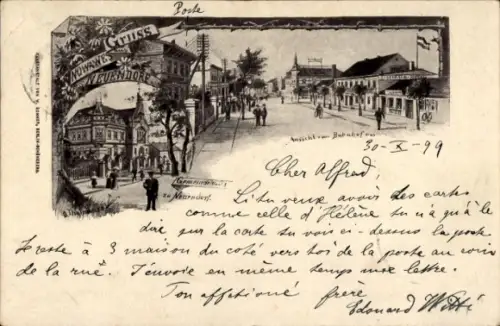 Poste
Gruss
aus
NOWAWES
NEUENDORF
Ansicht vom Bahnhof aus
in Neuendorf
30-X-99
Cher Alfred,
Si tu veux avoir des cartes
comme celle d'Hélène tu n'a qu'à le
dire sur la carte tu vois ici dessus la poste
Je reste à 3 maison du coté vers toi de la poste au coin
de la rue. J'envoie en même temps une lettre.
Ton affectioné frère
Edouard